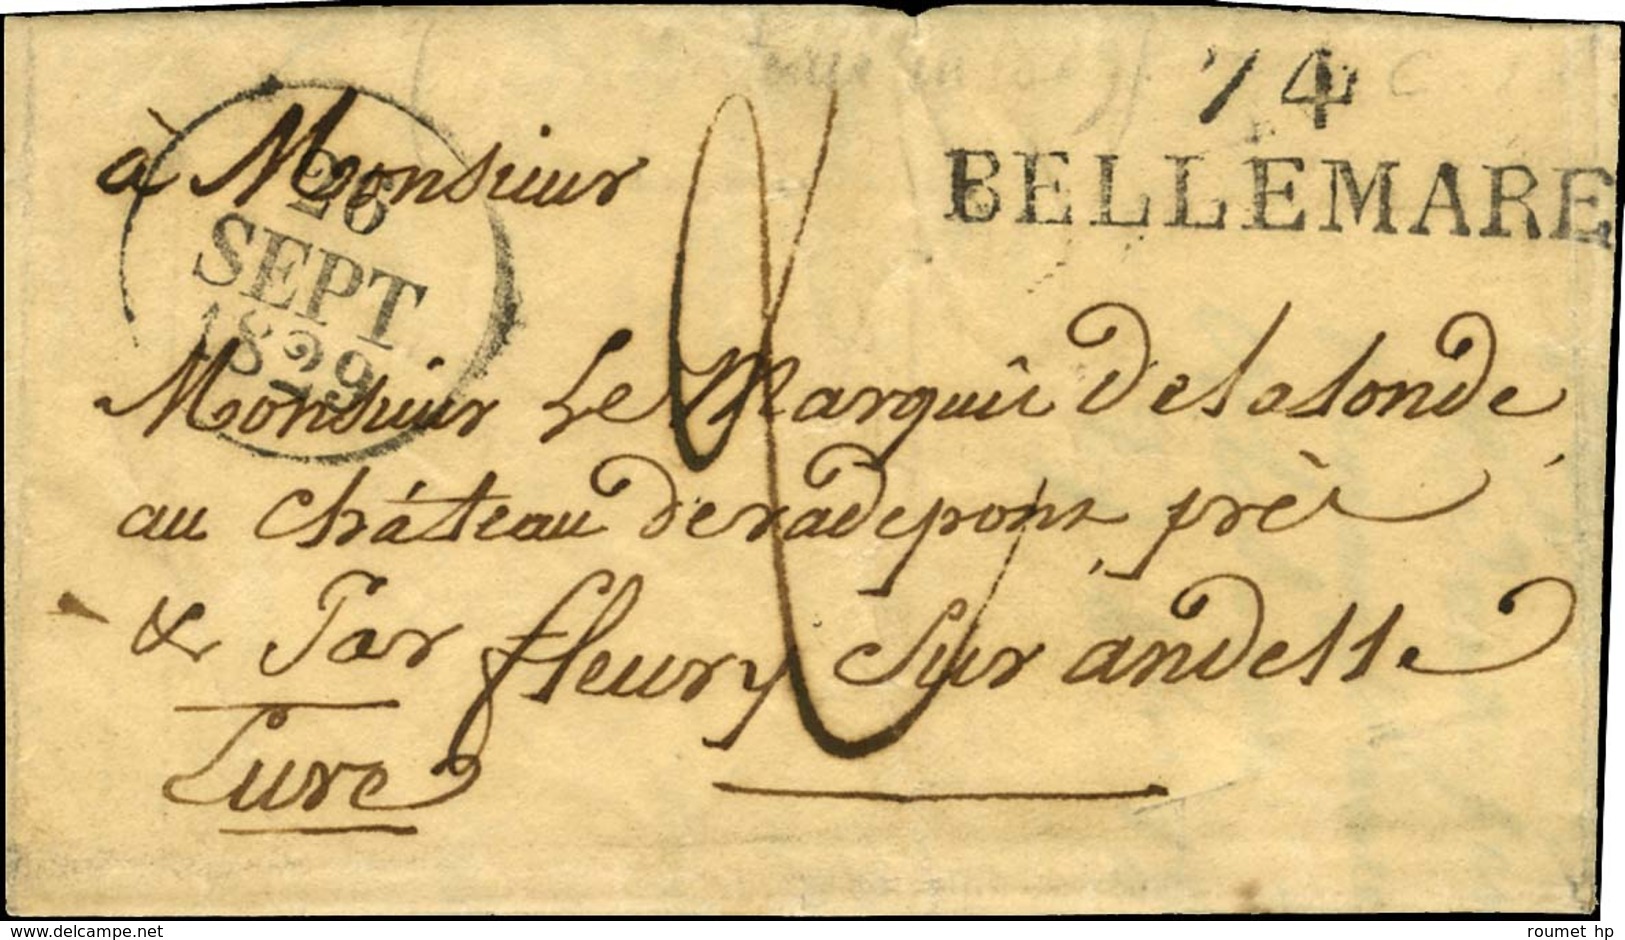 74
BELLEMARE
26
SEPT
1829
à Monsieur
Monsieur Le Marquis Delalonde
au château deradepont près
& Par fleury sur andelle
Eure
2
delcampe.net
roumet hp